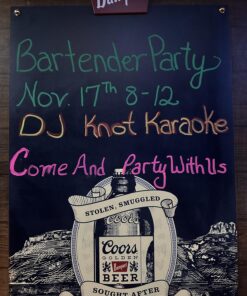 Bartender Party
Nov. 17th 8-12
DJ Knot Karaoke
Come And Party With Us
STOLEN, SMUGGLED
Coors
GOLDEN
Banquet
BEER
SOUGHT AFTER